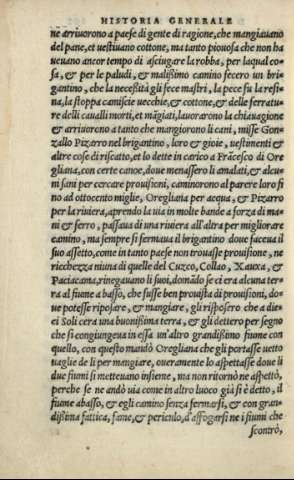 HISTORIA GENERALE
ne arriuorono a paese di gente di ragione, che mangiauano
del pane, et uestiuano cottone, ma tanto piouosa che non ha
ueuano ancor tempo di asciugare la robba, per laqual co-
sa, & per le paludi, & malissimo camino fecero un bri-
gantino, che la necessità gli fece mastri, la pece fu la resi-
na, la stoppa camiscie uecchie, & cottone, & delle ferratu-
re delli caualli morti, et mãgiati, lauorarono la chiauagione
& arriuorono a tanto che mangiorono li cani, misse Gon-
zallo Pizarro nel brigantino, loro & gioie, uestimenti &
altre cose di riscatto, et lo dette in carico a Frãcesco di Ore
gliana, con certe canoe, doue menassero li amalati, & alcu-
ni sani per cercare prouisioni, caminorono al parere loro fi
no ad ottocento miglie, Oregliana per acqua, & Pizarro
per la riuiera, aprendo la uia in molte bande a forza di ma-
ni & ferro, passaua di una riuiera all'altra per migliorare
camino, ma sempre si fermaua il brigantino doue faceua il
suo assetto, come in tanto paese non trouasse prouisione, ne
ricchezza niuna di quelle del Cuzco, Collao, Xauxa, &
Paciacama, rinegauano li suoi, domãdo se ci era alcuna ter-
ra al fiume a basso, che fusse ben prouista di prouisioni, do-
ue potesse riposare, & mangiare, gli risposero che a die-
ci Soli cera una buonissima terra, & gli dettero per segno
che si congiungeua in essa un'altro grandissimo fiume con
quello, con questo mandò Oregliana che gli portasse uetto
uaglie de li per mangiare, oueramente lo aspettasse doue li
due fiumi si metteuano insieme, ma non ritornò ne aspettò,
perche se ne andò uia come in altro luoco già si è detto, il
fiume abasso, & egli camino senza fermarsi, & con gran-
dissima fattica, fame, & periculo, d'affogarsi ne i fiumi che
scontrò,